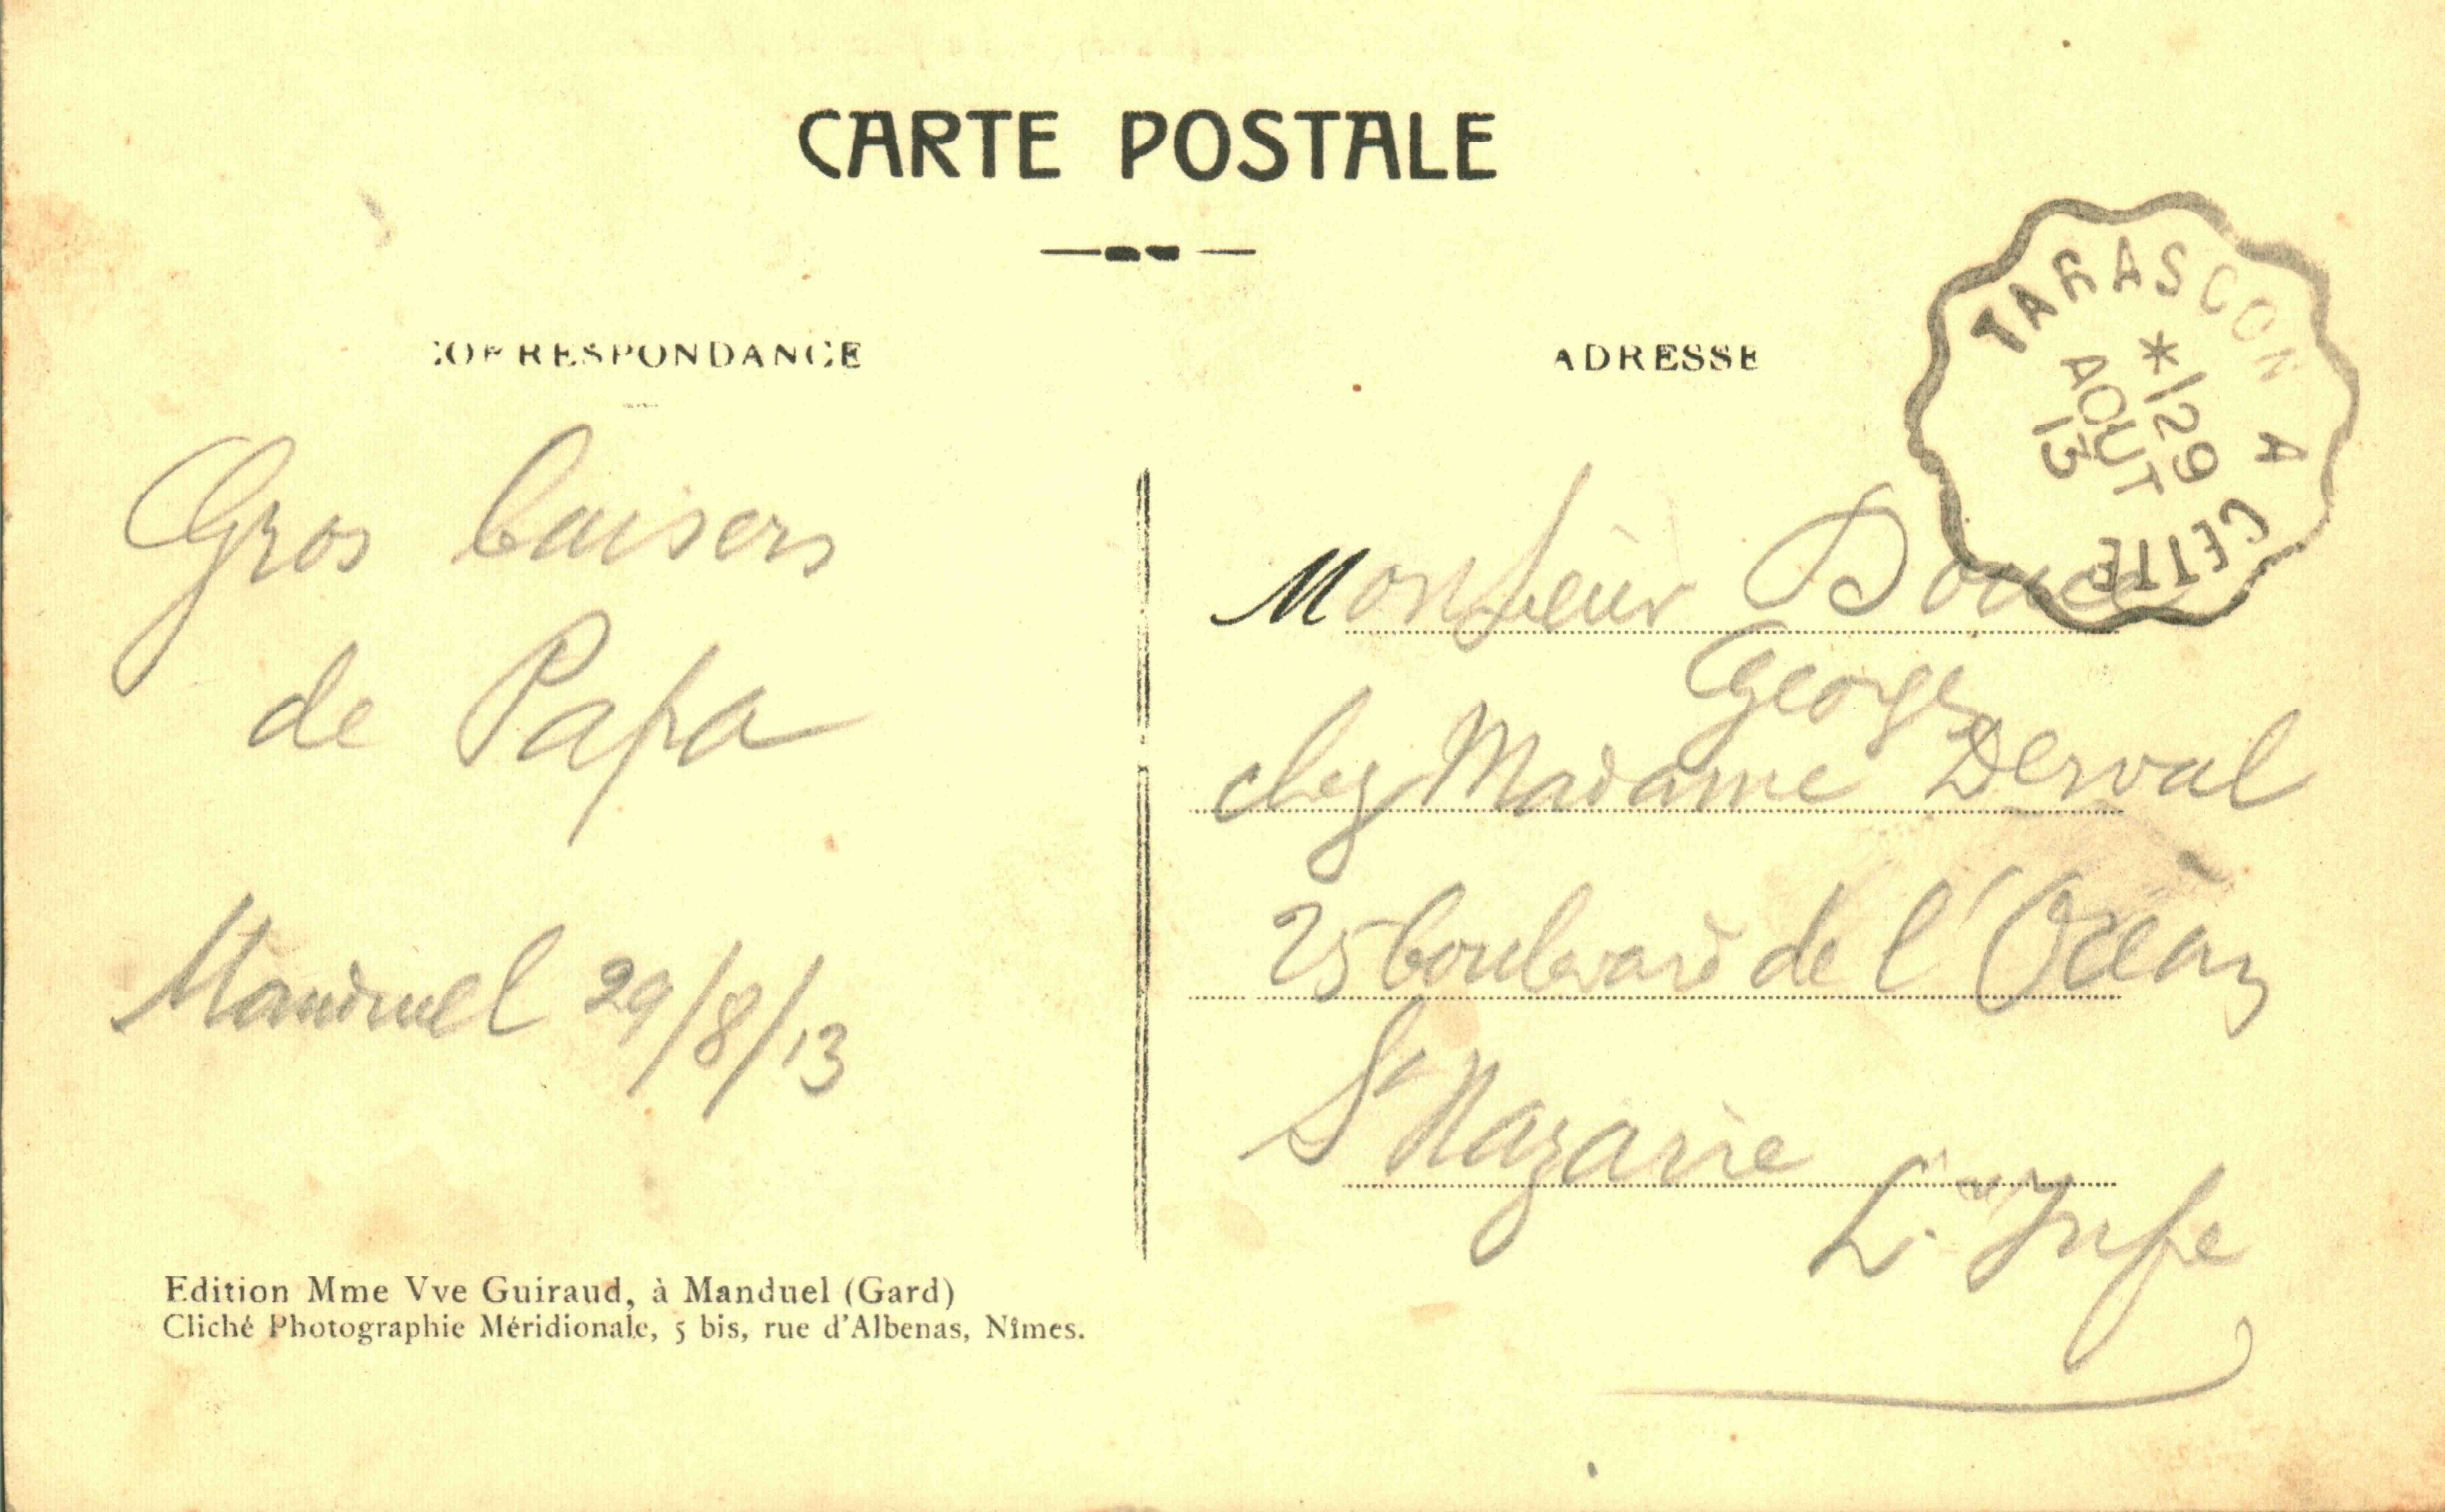 CARTE POSTALE
CORRESPONDANCE
ADRESSE
TARASCON A CETTE
* 29
AOUT
13
Gros baisers
de Papa
Manduel 29/8/13
Monsieur
George
chez Madame Derval
25 boulevard de l'Océan
St Nazaire
L. Infe
Edition Mme Vve Guiraud, à Manduel (Gard)
Cliché Photographie Méridionale, 5 bis, rue d'Albenas, Nîmes.